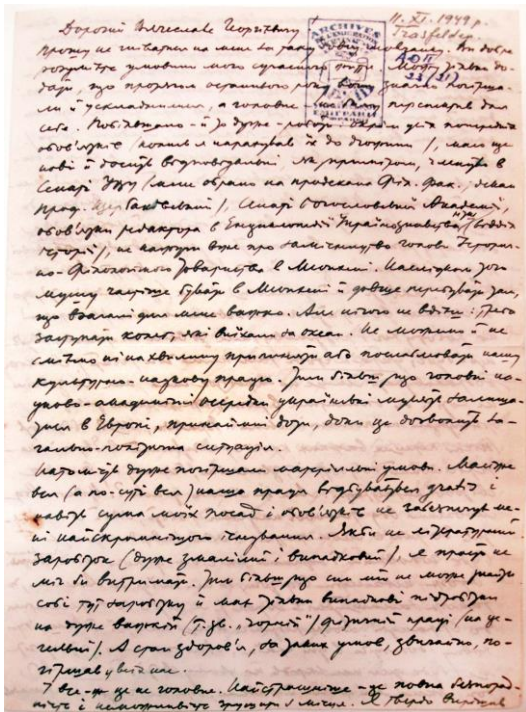 11. XI. 1949 р.
Дорогий Вячеславе
прошу не гніватися на мене за таку довгу мовчанку. Ви добре
розумієте умовини мого сучасного життя. Можу тільки до-
дати, що протягом останнього року вони значно погірши-
ли й ускладнилися, а головне
себе. Побільшало – й то дуже – роботи.
обов'язків (колись я нарахував їх до дюжини), маю ще
нові й досить відповідальні. Як приміром, членство в
Сенаті УВУ (мене обрано на продекана Філ. Фак., декан
проф. ), Сенаті Богословської Академії,
обов'язки редактора в Енциклопедії Українознавства (відділ
історії), не кажучи вже про заступництво голови Історич-
но-Філологічного Товариства в Мюнхені. Наслідком того
мушу частіше бувати в Мюнхені й довше перебувати там,
що взагалі для мене важко. Але нічого не вдієш: треба
заступати колег, які виїхали за океан. Не можемо й не
сміємо ні на хвилину припиняти або послаблювати нашу
культурно-наукову працю. Тим більше, що головні на-
уково-академічні осередки українські мусять залиша-
тися в Європі, принаймні доти, доки це дозволить за-
гально-політична ситуація.
Натомість дуже погіршали матеріяльні умови. Майже
вся (а по-суті вся) наша праця відбувається gratis і
навіть сума моїх посад і обов'язків не забезпечує ме-
ні найскромнішого існування. Якби не літературний
заробіток (дуже змалілий і випадковий), я просто не
міг би витримати. Тим більше, що син мій не може знайти
собі тут заробітку й має тільки випадкові підробітки
на дуже важкій (т. зв. "чорній") фізичній праці (на це-
гельні). А стан здоров'я, за таких умов, звичайно, по-
гіршав у всіх нас.
І все-ж це не головне. Найстрашніше – це повна безпорад-
ність і неможливість Я твердо вирішив